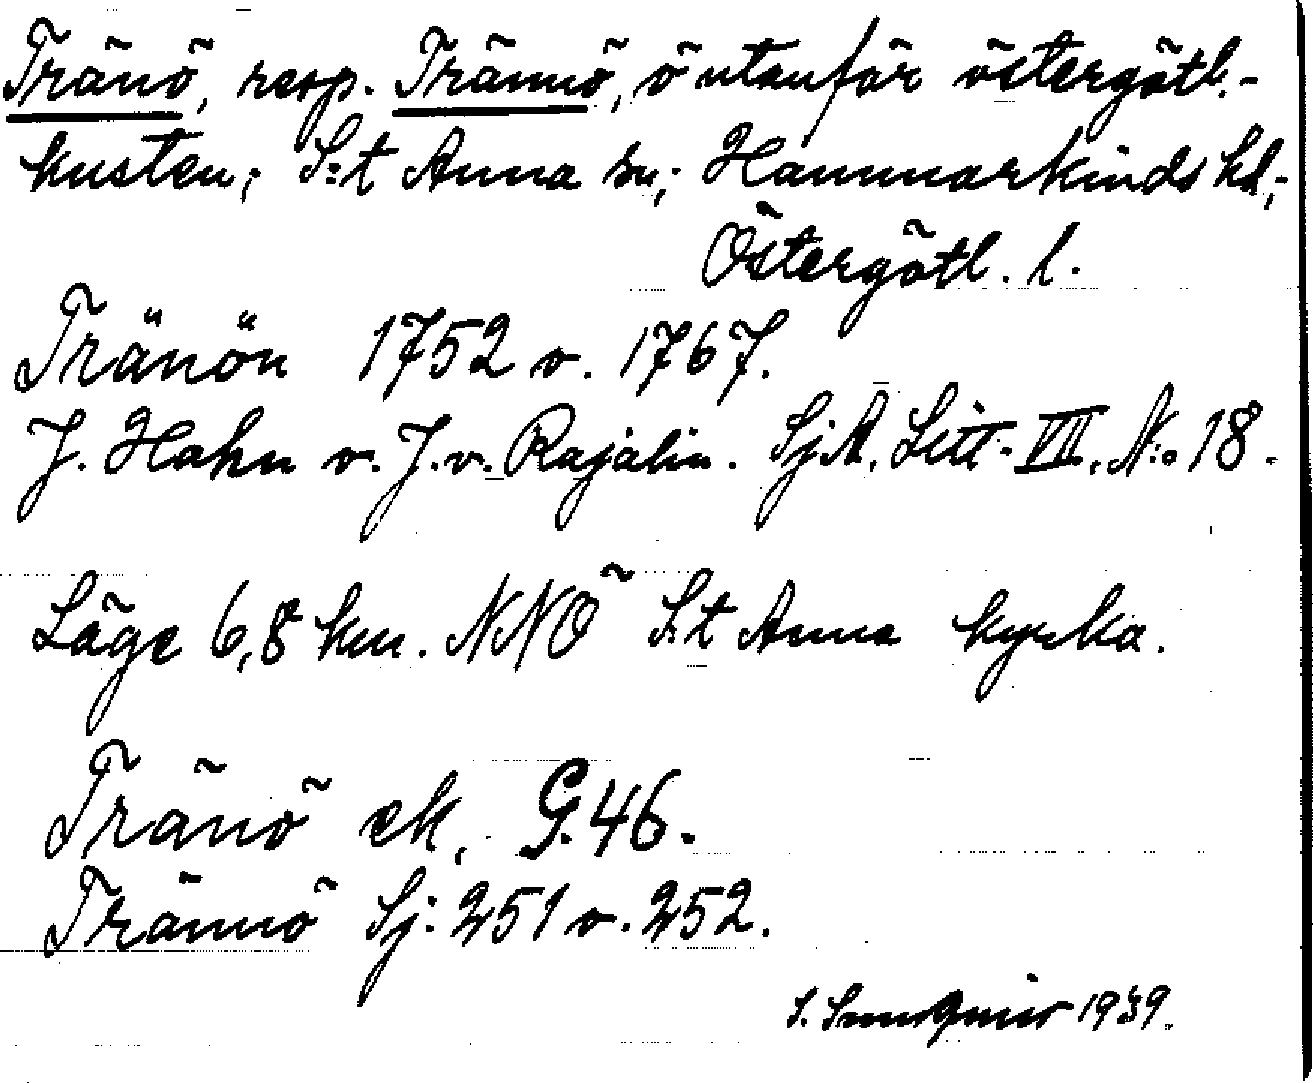 Tränö, resp. Trännö, ö utanför östergötl.-
kusten; S:t Anna sn; Hammarkinds hd,-
Östergötl. l.
Tränön 1752 o. 1767.
J. Hahn o. J. v. Rajalin. SjA, Litt. VIII, N:o 18.
Läge 6,8 km. NNO S:t Anna kyrka.
Tränö ek, G. 46.
Trännö Sj: 251 o. 252.
S. 1939.